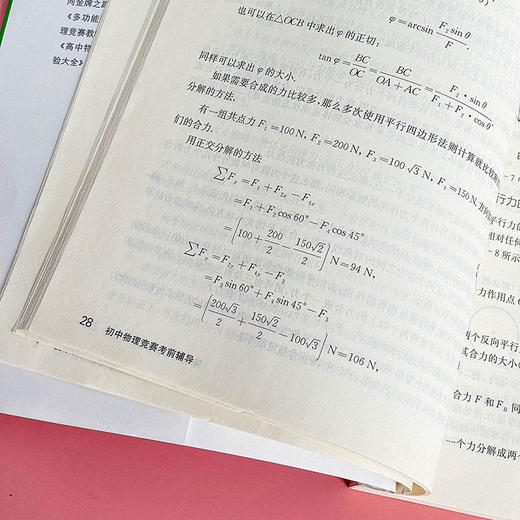 向金牌之路
《多功能
理竞赛教
《高中物
验大全》
φ=arcsin F₂sinθ/F.
也可以在△OCB中求出φ的正切:
tanφ=BC/OC=BC/(OA+AC)=F₂·sinθ/(F₁+F₂·cosθ)
同样可以求出φ的大小.
如果需要合成的力比较多,那么多次使用平行四边形法则计算就比较
分解的方法.
有一组共点力F₁=100N, F₂=200N, F₃=100√3N, F₄=150N.方向
们的合力.
用正交分解的方法
∑Fₓ=F₁+F₂ₓ-F₄ₓ
=F₁+F₂cos60°-F₄cos45°
=(100+200/2-150√2/2)N=94N,
∑Fᵧ=F₂ᵧ+F₄ᵧ-F₃
=F₂sin60°+F₄sin45°-F₃
=(200√3/2+150√2/2-100√3)N=106N,
28
初中物理竞赛考前辅导
-7
行力的
平行力的
相对任何
-8所示
力作用点
两个反向平行
其合力的大小
合力F和F_B同
一个力分解成两个